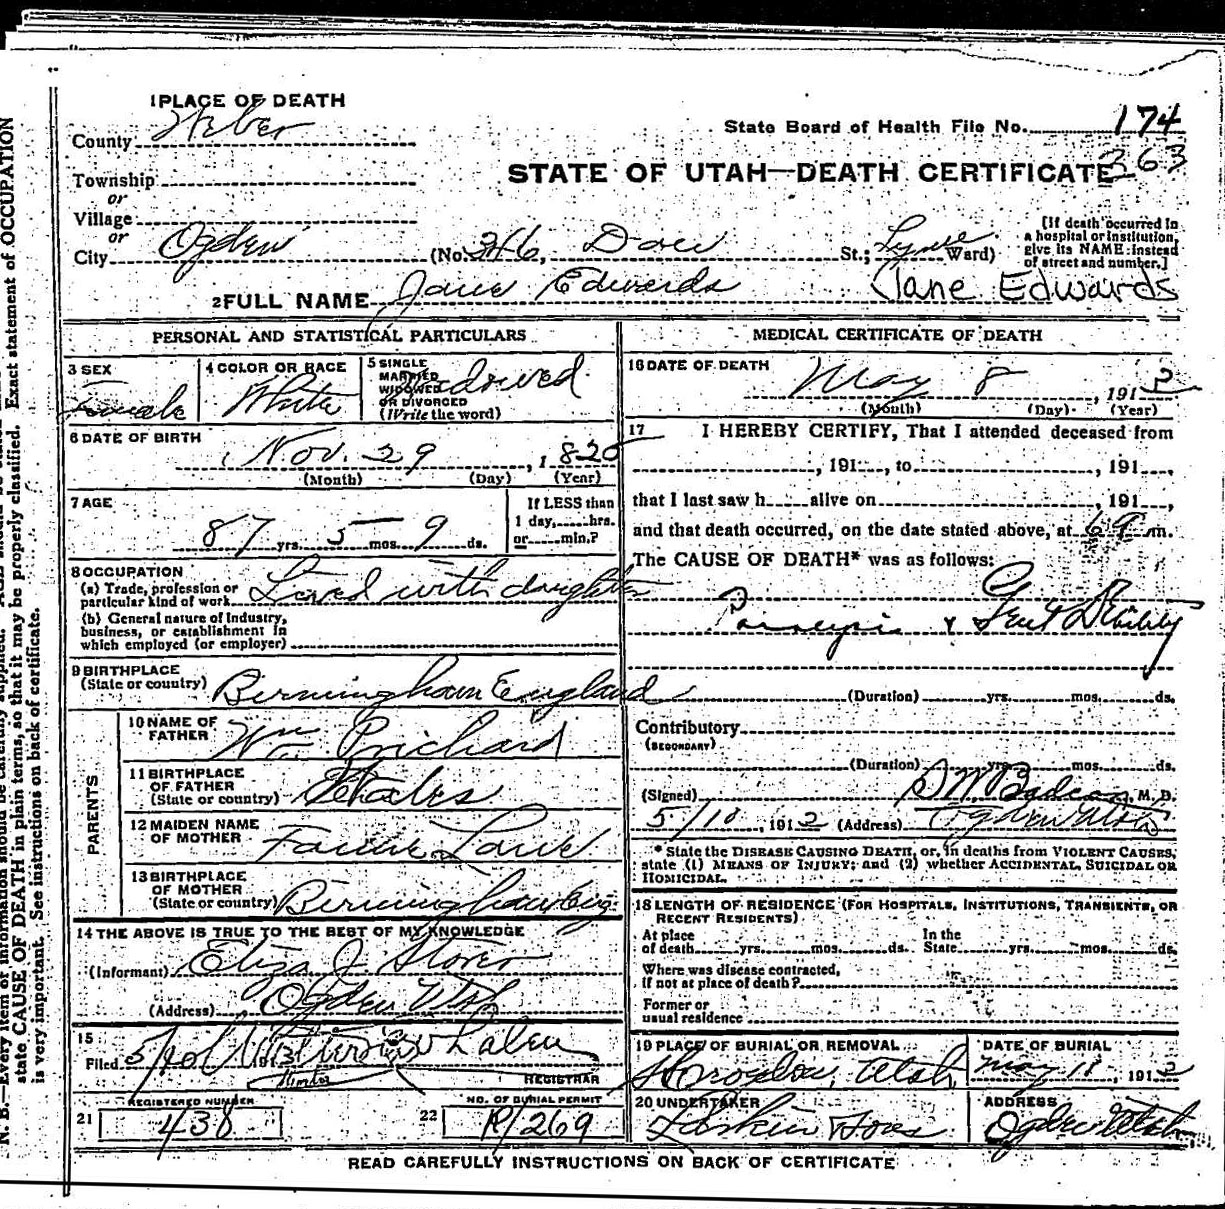 1 PLACE OF DEATH
County Weber
State Board of Health File No. 174
363
STATE OF UTAH—DEATH CERTIFICATE
Township
or
Village
or
City Ogden (No. 346, Dou St.; Lynne Ward)
[If death occurred in a hospital or institution, give its NAME instead of street and number.]
2 FULL NAME Jane Edwards Jane Edwards
PERSONAL AND STATISTICAL PARTICULARS
3 SEX Female
4 COLOR OR RACE White
5 SINGLE MARRIED WIDOWED OR DIVORCED (Write the word) Widowed
6 DATE OF BIRTH
Nov. 29, 182
(Month) (Day) (Year)
7 AGE
87 yrs. 5 mos. 9 ds.
If LESS than 1 day, hrs. or min.?
8 OCCUPATION
(a) Trade, profession or particular kind of work Lived with daughter
(b) General nature of industry, business, or establishment in which employed (or employer)
9 BIRTHPLACE (State or country) Birmingham England
PARENTS
10 NAME OF FATHER Wm Prichard
11 BIRTHPLACE OF FATHER (State or country) Wales
12 MAIDEN NAME OF MOTHER Fannie
13 BIRTHPLACE OF MOTHER (State or country) Birmingham Eng.
14 THE ABOVE IS TRUE TO THE BEST OF MY KNOWLEDGE
(Informant) Eliza J. Storer
(Address) Ogden Utah
15
Filed 5/10 191 Whalen
REGISTRAR
21 REGISTERED NUMBER 438
22 NO. OF BURIAL PERMIT 269
MEDICAL CERTIFICATE OF DEATH
16 DATE OF DEATH
May 8, 1912
(Month) (Day) (Year)
17 I HEREBY CERTIFY, That I attended deceased from
, 191 , to , 191 ,
that I last saw h alive on , 191 ,
and that death occurred, on the date stated above, at 6 m.
The CAUSE OF DEATH* was as follows:
Paralysis & Genl Debility
(Duration) yrs. mos. ds.
Contributory
(SECONDARY)
(Duration) yrs. mos. ds.
(Signed) , M. D.
5/10, 1912 (Address) Ogden Utah
* State the DISEASE CAUSING DEATH, or, in deaths from VIOLENT CAUSES, state (1) MEANS OF INJURY; and (2) whether ACCIDENTAL, SUICIDAL OR HOMICIDAL.
18 LENGTH OF RESIDENCE (FOR HOSPITALS, INSTITUTIONS, TRANSIENTS, OR RECENT RESIDENTS)
At place of death yrs. mos. ds. In the State yrs. mos. ds.
Where was disease contracted, if not at place of death?
Former or usual residence
19 PLACE OF BURIAL OR REMOVAL Utah
DATE OF BURIAL May 1912
20 UNDERTAKER Larkin Sons
ADDRESS Ogden Utah
READ CAREFULLY INSTRUCTIONS ON BACK OF CERTIFICATE
N. B.—Every item of information should be carefully supplied.
Exact statement of OCCUPATION
state CAUSE OF DEATH in plain terms, so that it may be properly classified.
is very important. See instructions on back of certificate.